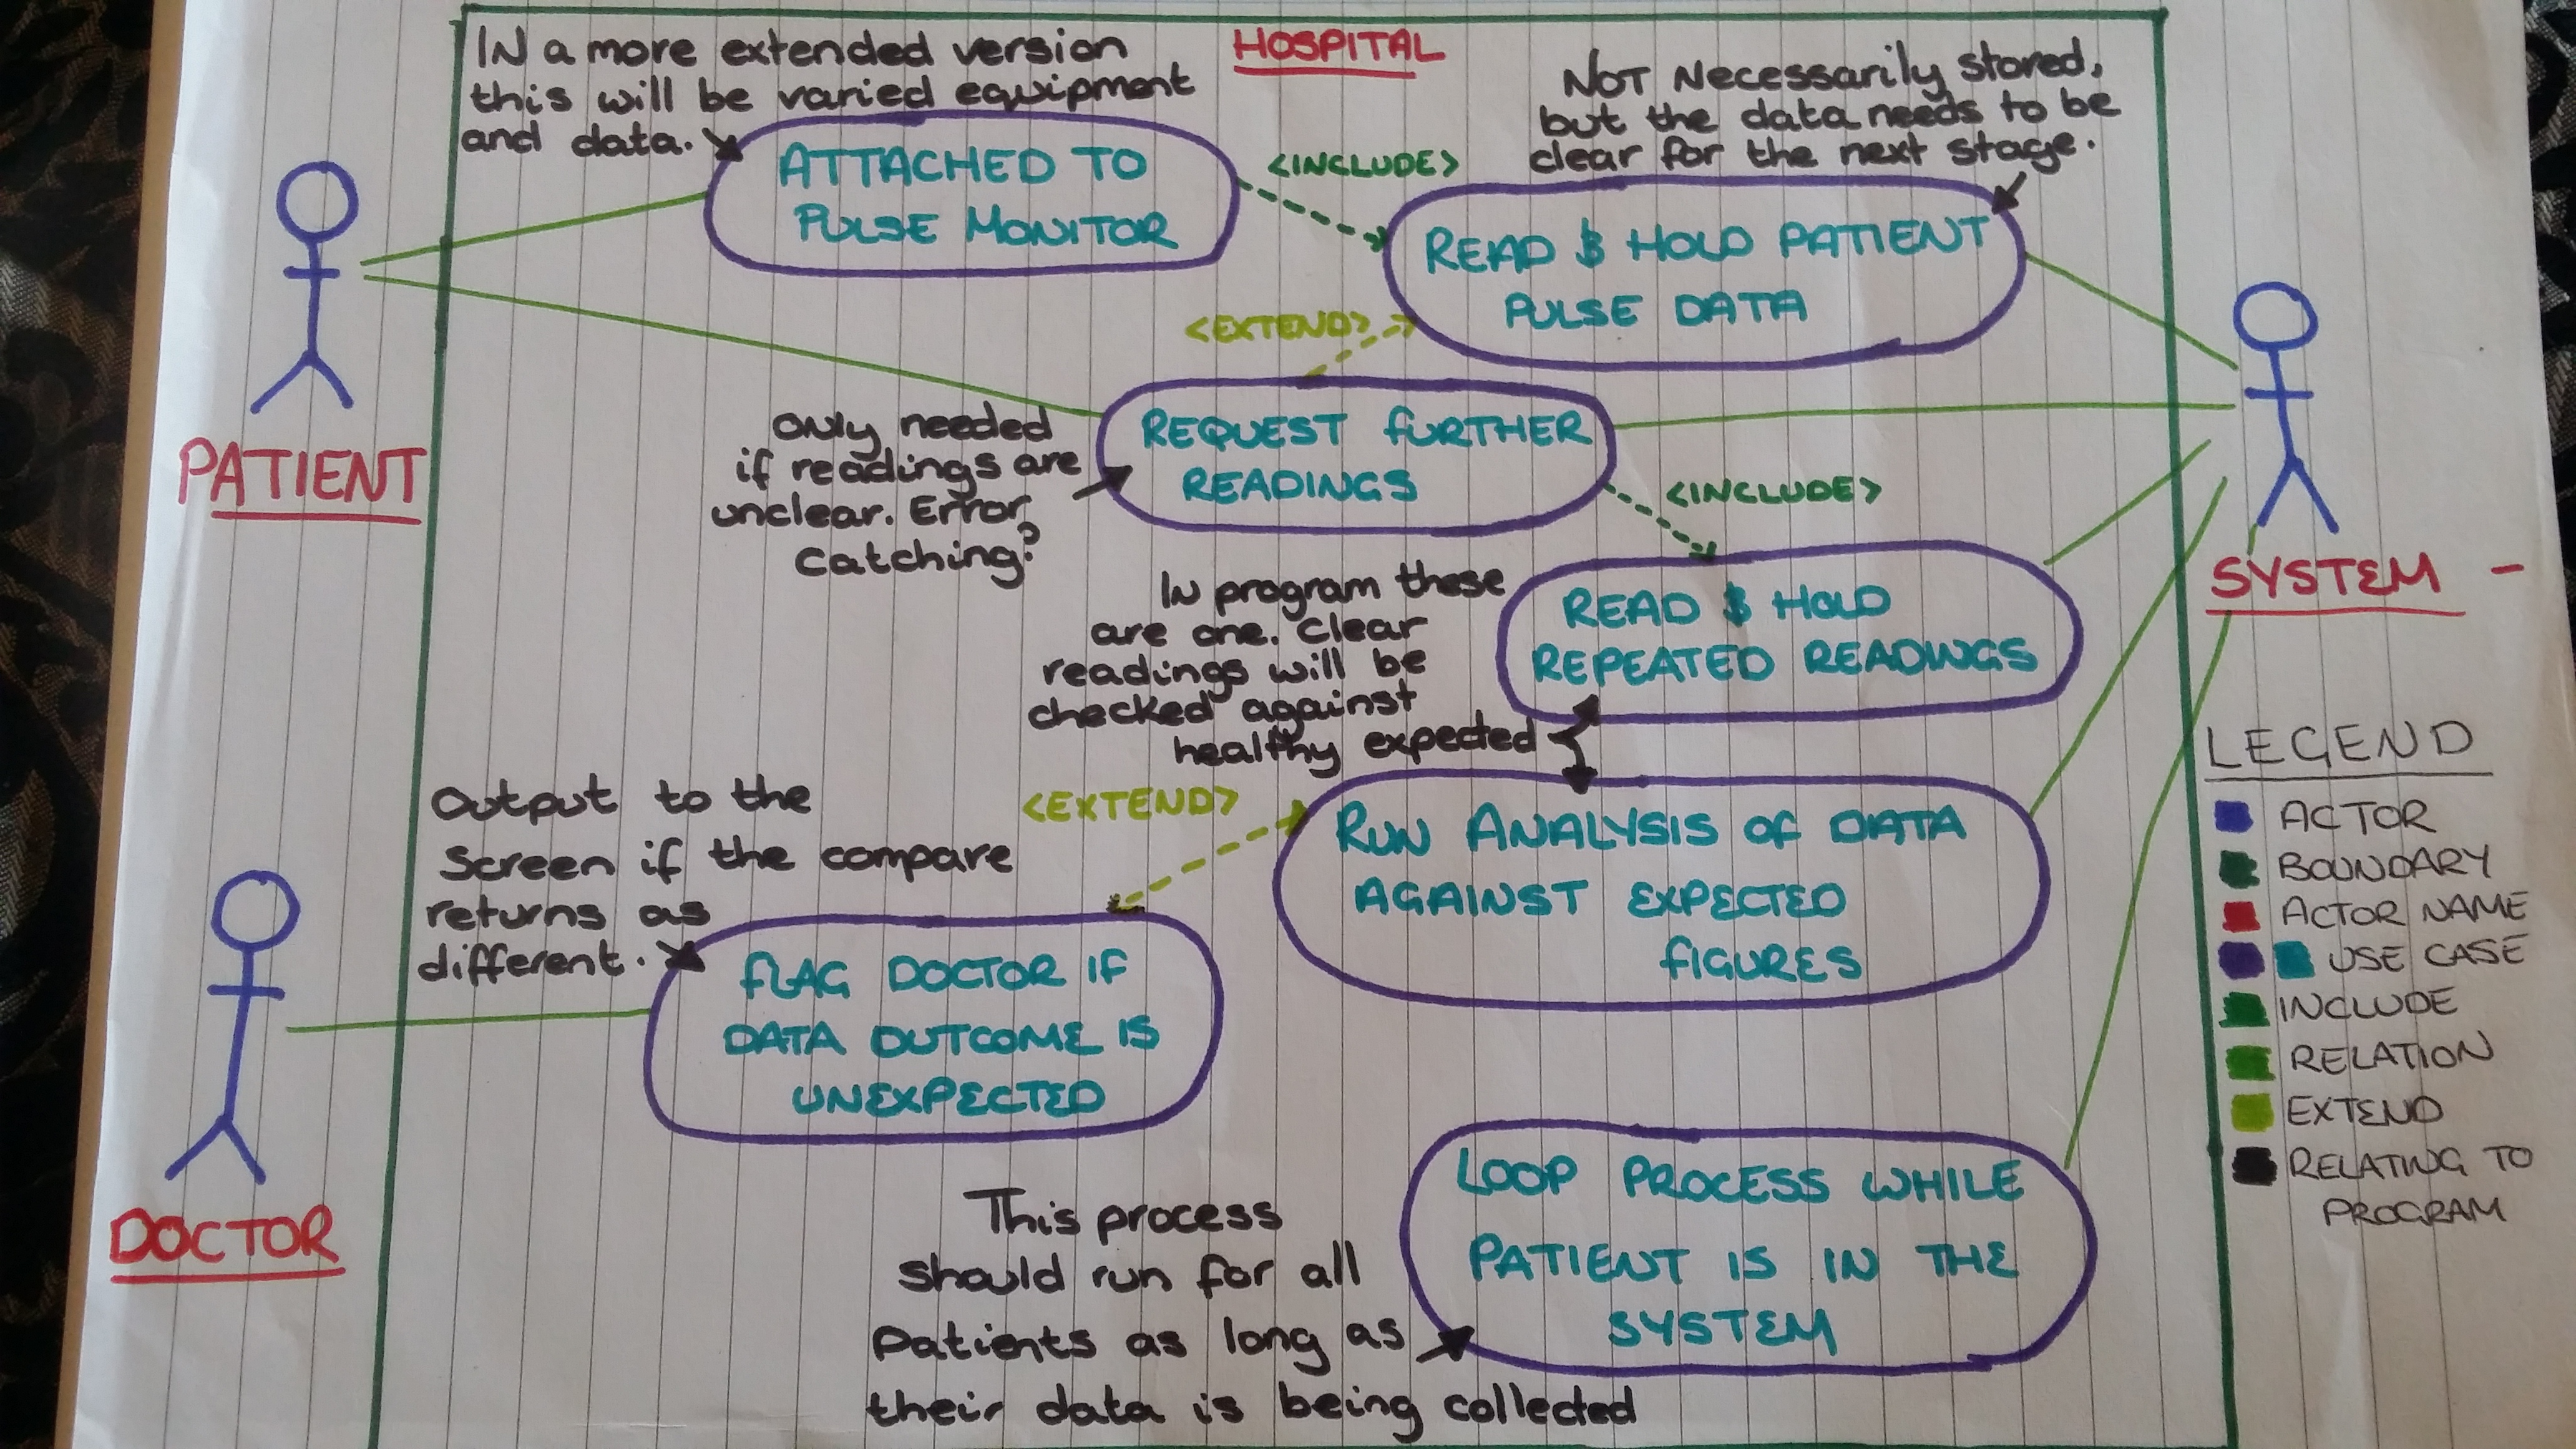 HOSPITAL
IN a more extended version
this will be varied equipment
and data.
NOT Necessarily stored,
but the data needs to be
clear for the next stage.
ATTACHED TO
PULSE MONITOR
<INCLUDE>
READ & HOLD PATIENT
PULSE DATA
<EXTEND>
PATIENT
only needed
if readings are
unclear. Error
catching?
REQUEST FURTHER
READINGS
<INCLUDE>
SYSTEM -
In program these
are one. Clear
readings will be
checked against
healthy expected
READ & HOLD
REPEATED READINGS
Output to the
Screen if the compare
returns as
different.
<EXTEND>
RUN ANALYSIS OF DATA
AGAINST EXPECTED
FIGURES
FLAG DOCTOR IF
DATA OUTCOME IS
UNEXPECTED
DOCTOR
This process
should run for all
Patients as long as
their data is being collected
LOOP PROCESS WHILE
PATIENT IS IN THE
SYSTEM
LEGEND
ACTOR
BOUNDARY
ACTOR NAME
USE CASE
INCLUDE
RELATION
EXTEND
RELATING TO
PROGRAM